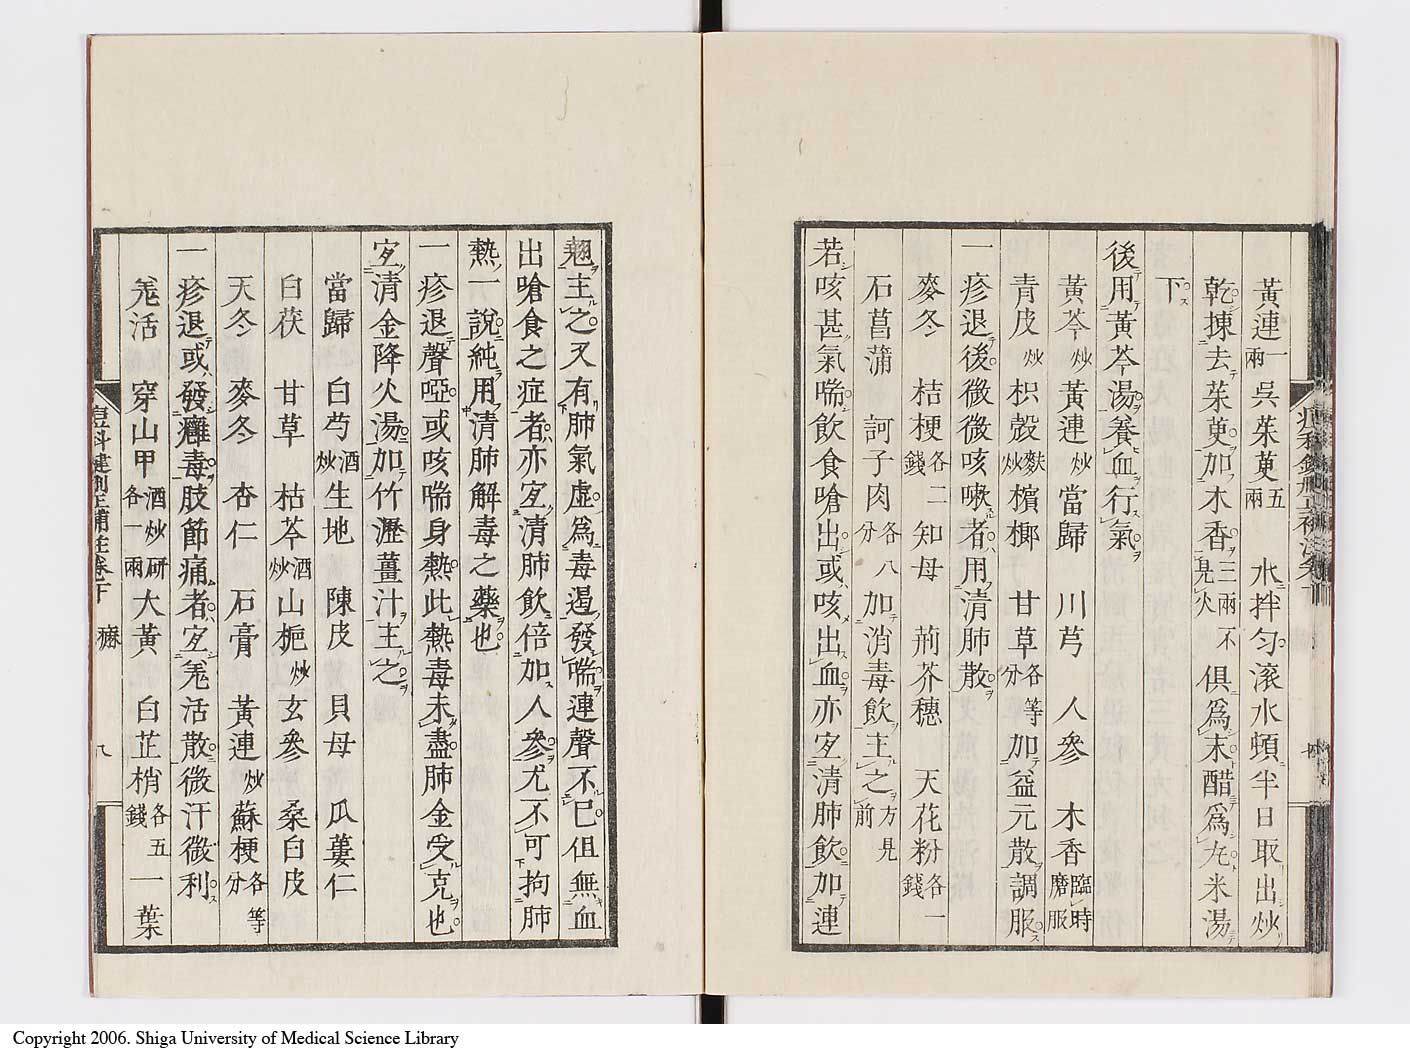 黃連一兩 吳茱萸五兩 水拌匀滾水頓半日取出炒
乾揀去茱萸加木香三兩不見火 俱爲末醋爲丸米湯
下
後用黃芩湯養血行氣
黃芩炒 黃連炒 當歸 川芎 人參 木香臨時磨服
青皮炒 枳殼麩炒 檳榔 甘草各等分 加益元散調服
一疹退後微微咳嗽者用清肺散
麥冬 桔梗各二錢 知母 荊芥穗 天花粉各一錢
石菖蒲 訶子肉各八分 加消毒飲主之方見前
若咳甚氣喘飲食嗆出或咳出血亦宜清肺飲加連
翹主之又有肺氣虛爲毒遏發喘連聲不已但無血
出嗆食之症者亦宜清肺飲倍加人參尤不可拘肺
熱一說純用清肺解毒之藥也
一疹退聲啞或咳喘身熱此熱毒未盡肺金受克也
宜清金降火湯加竹瀝薑汁主之
當歸 白芍酒炒 生地 陳皮 貝母 瓜蔞仁
白茯 甘草 枯芩酒炒 山梔炒 玄參 桑白皮
天冬 麥冬 杏仁 石膏 黃連炒 蘇梗各等分
一疹退或發癰毒肢節痛者宜羌活散微汗微利
羌活 穿山甲酒炒研各一兩 大黃 白芷梢各五錢 一葉
痘科鍵刪正補註卷下 痧 八
Copyright 2006. Shiga University of Medical Science Library